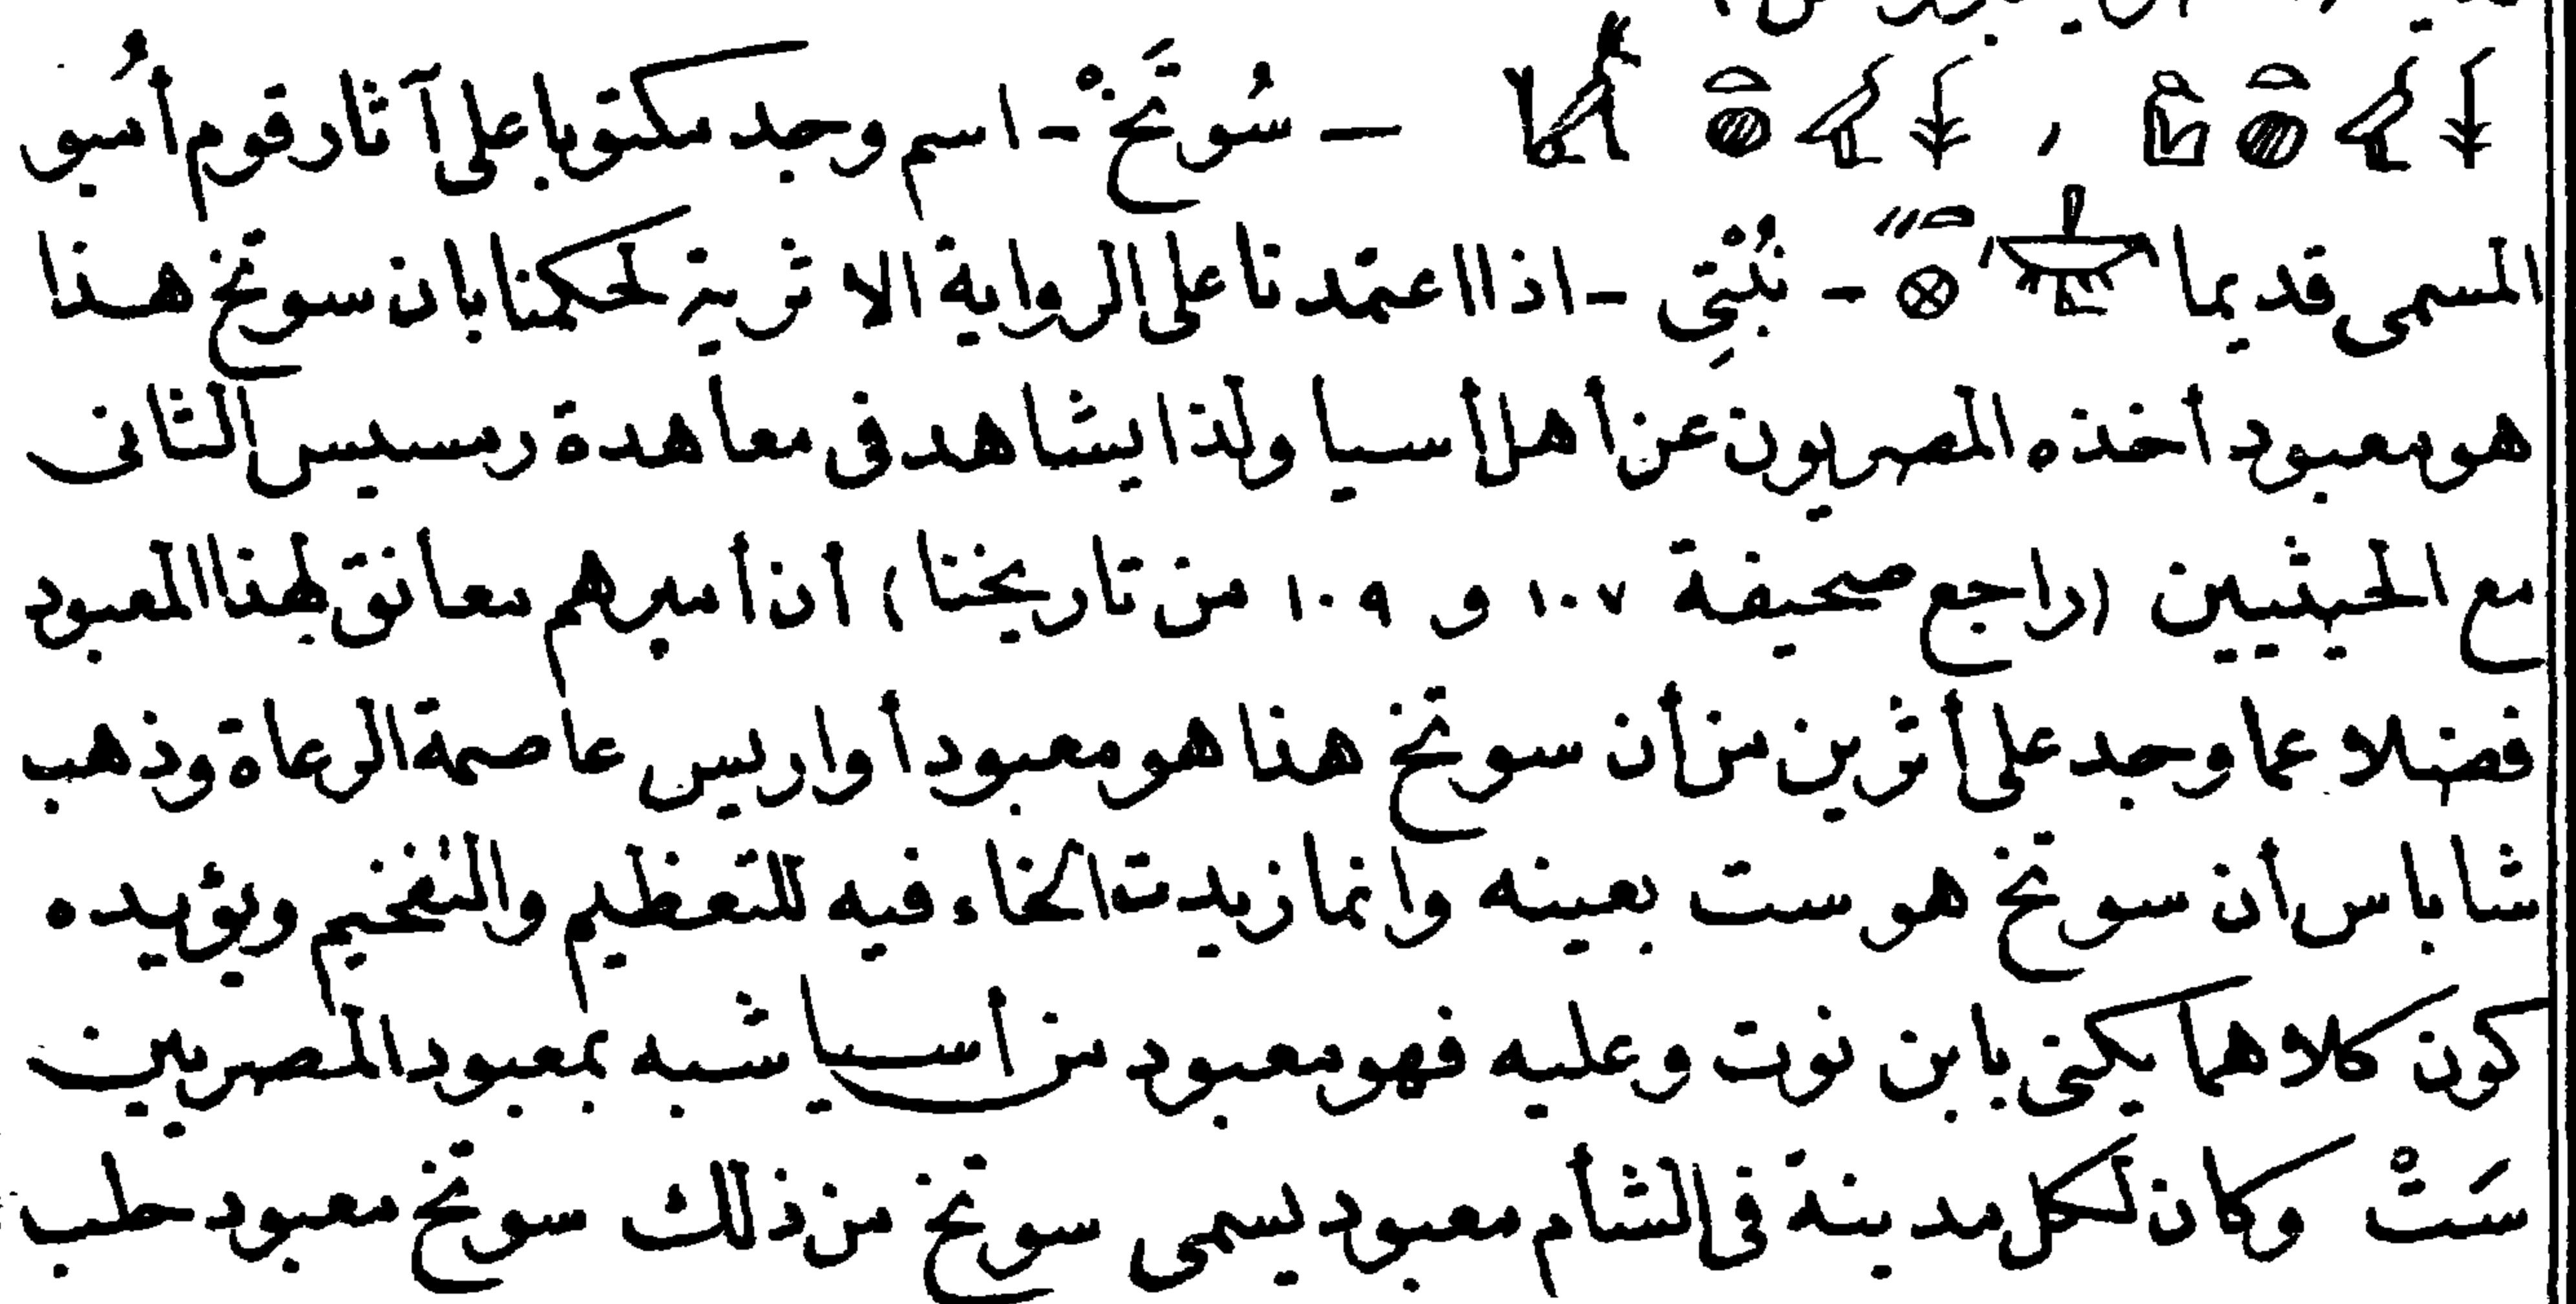 — سُوتَخْ - اسم وجد مكتوبا على آثار قوم أُمبو
المسمى قديما - نُبْتِى - اذا اعتمدنا على الرواية الاثرية لحكمنا بان سوتخ هذا
هو معبود أخذه المصريون عن أهل أسيا ولذا يشاهد فى معاهدة رمسيس الثانى
مع الحيثيين (راجع صحيفة ١٠٧ و ١٠٩ من تاريخنا) أن أميرهم معانق لهذا المعبود
فضلا عما وجد على أثرين من أن سوتخ هذا هو معبود أواريس عاصمة الرعاة وذهب
شاباس أن سوتخ هو ست بعينه وانما زيدت الخاء فيه للتعظيم والتفخيم ويؤيده
كون كلاهما يكنى بابن نوت وعليه فهو معبود من أسيا شبه بمعبود المصريين
سَتْ وكان لكل مدينة فى الشأم معبود يسمى سوتخ من ذلك سوتخ معبود حلب